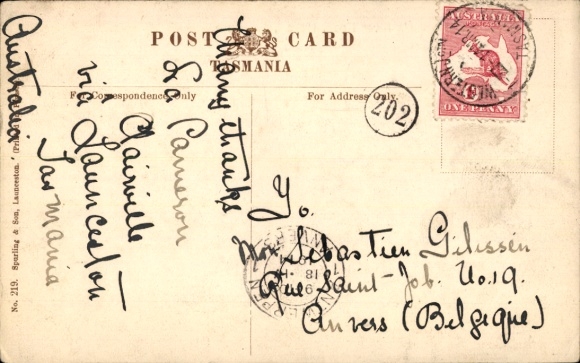 POST CARD
TASMANIA
For Correspondence Only
For Address Only.
Many thanks
Cameron
Clairville
via Launceston
Tasmania
Australia
No. 219. Spurling & Son, Launceston.
AUSTRALIA
ONE PENNY
202
To.
Sebastien Gilissen
Rue Saint-Job. No. 19.
Anvers (Belgique)